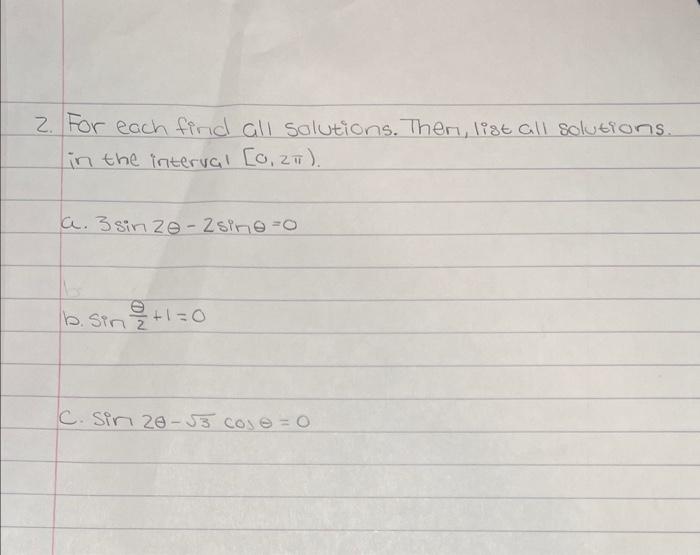 2. For each find all solutions. Then, list all solutions.
in the interval [0, 2π).
a. 3 sin 2θ - 2 sin θ = 0
b. sin θ/2 + 1 = 0
c. sin 2θ - √3 cos θ = 0